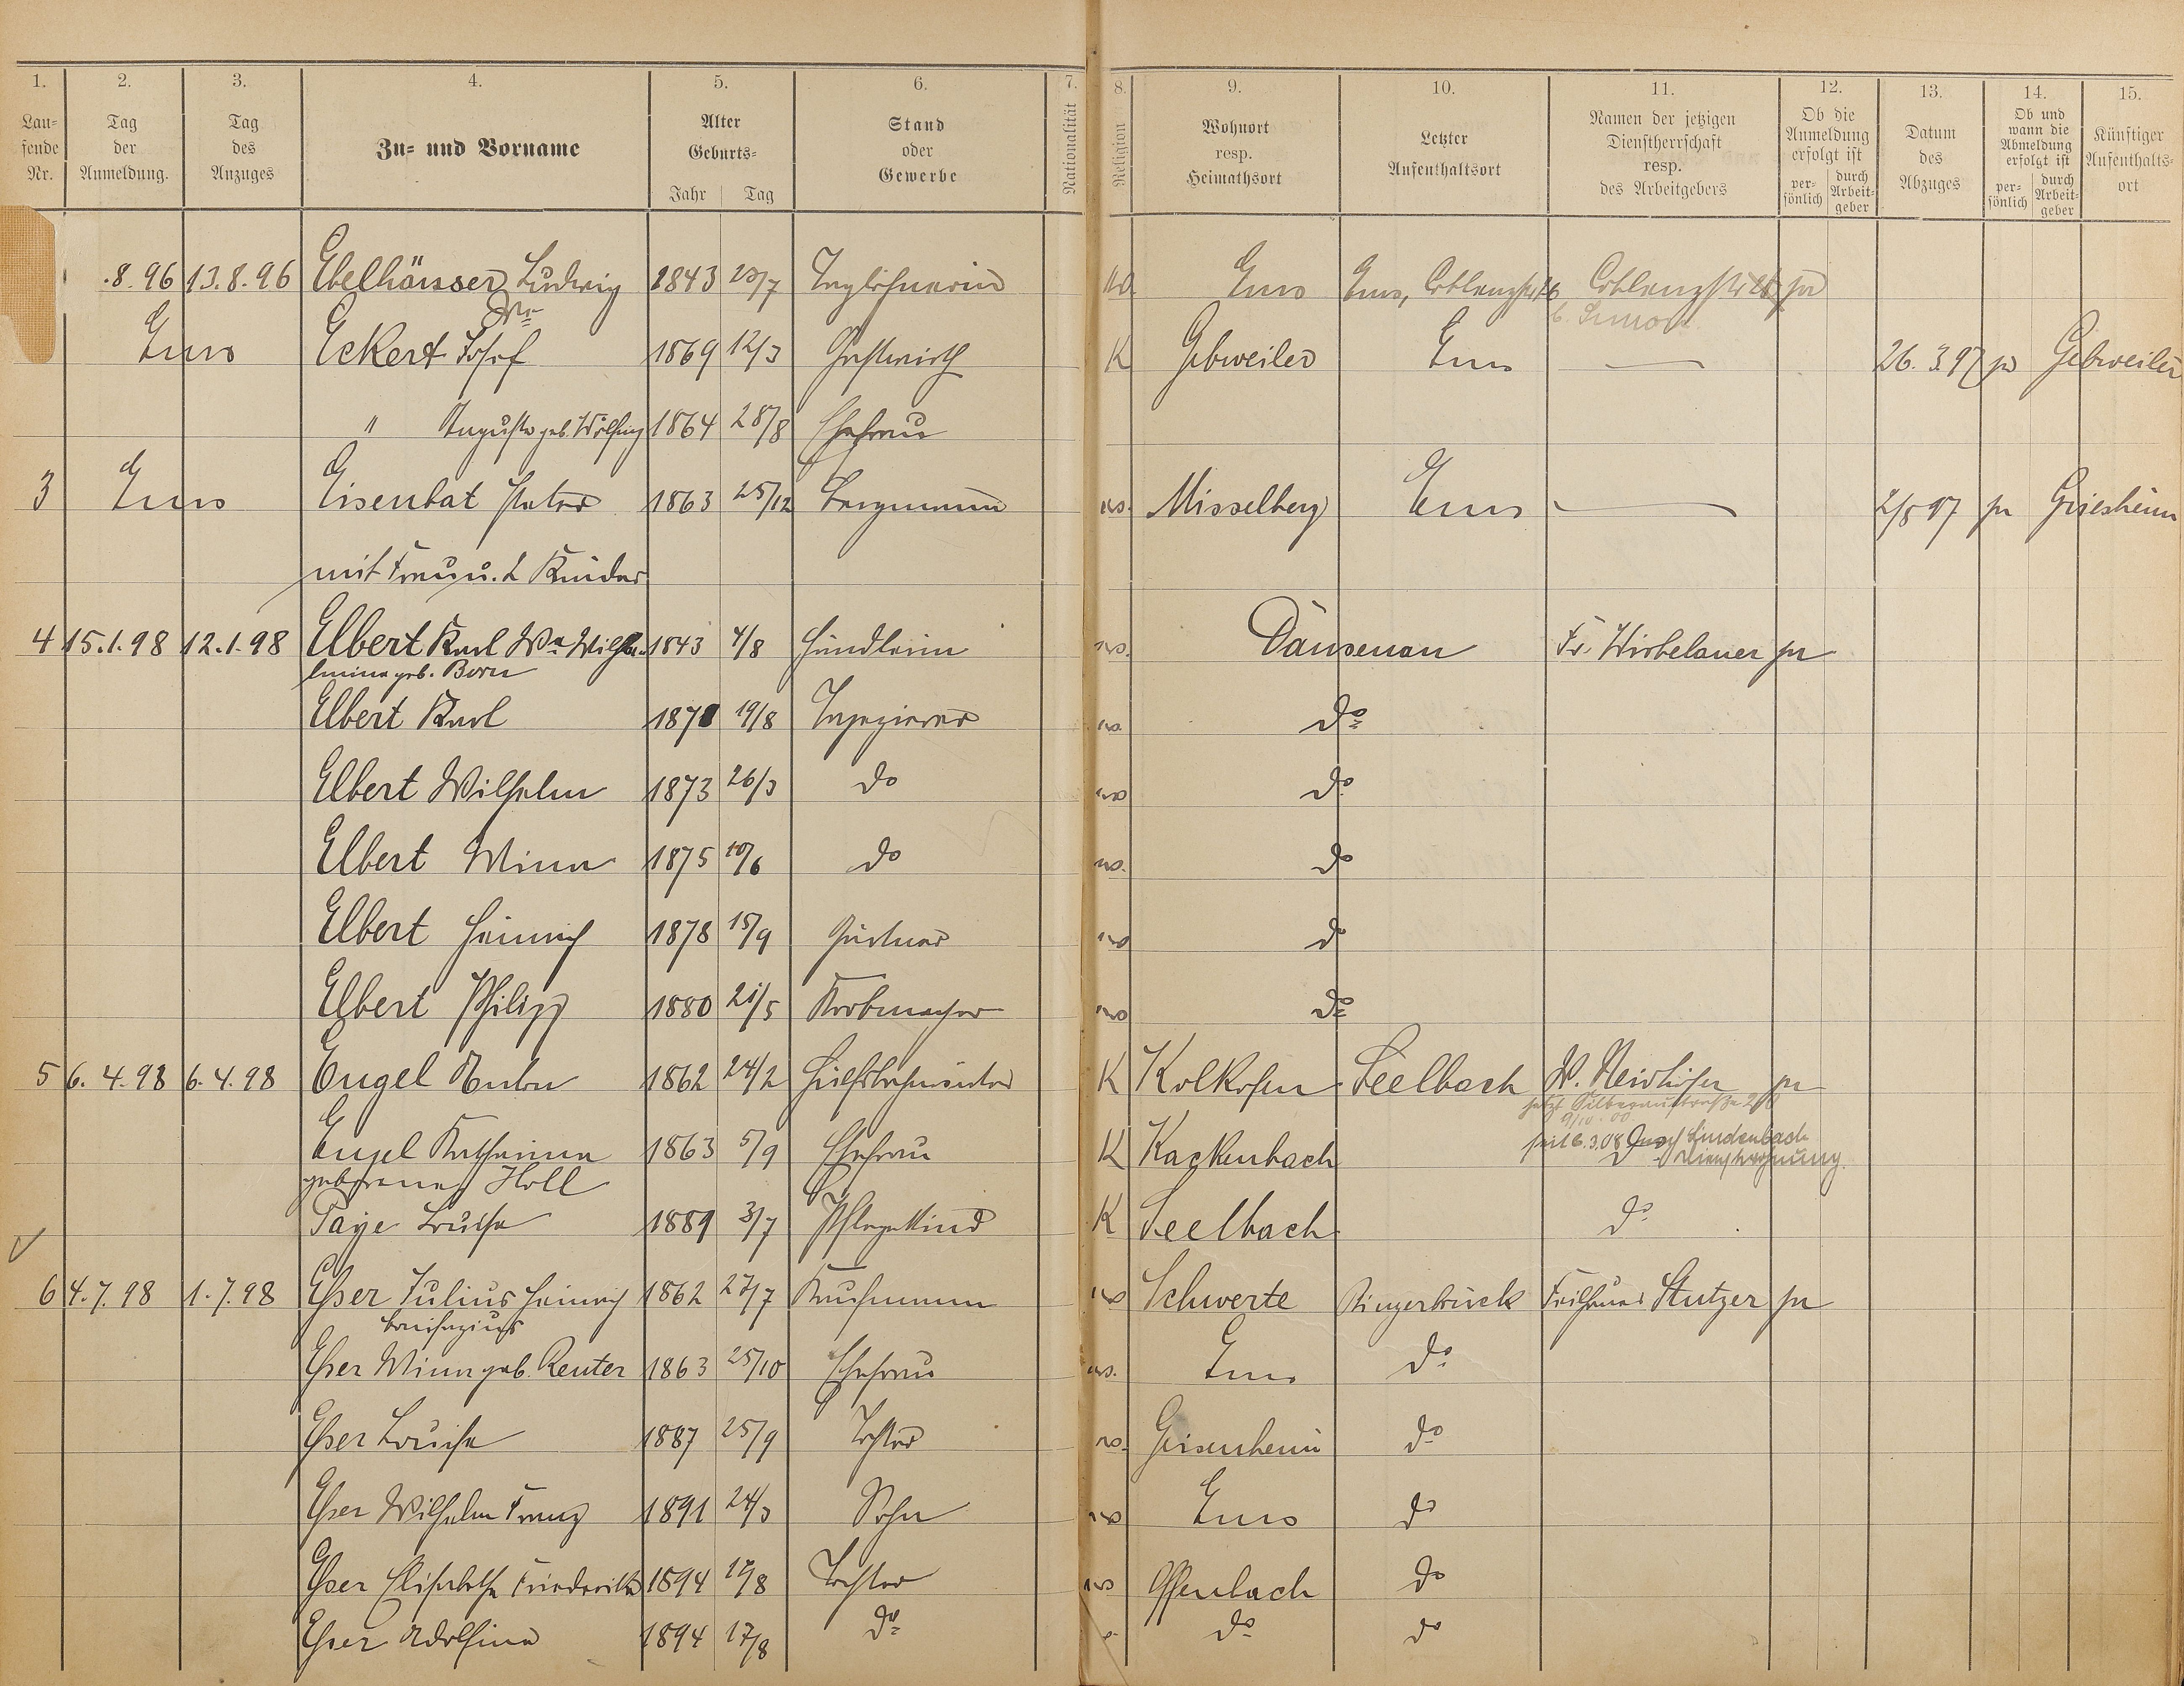 1. 2. 3. 4. 5. 6. 7. 8. 9. 10. 11. 12. 13. 14. 15.
Lau-
fende
Nr.
Tag
der
Anmeldung.
Tag
des
Anzuges
Zu- und Vorname
Alter
Geburts-
Jahr Tag
Stand
oder
Gewerbe
Nationalität
Religion
Wohnort
resp.
Heimathsort
Letzter
Aufenthaltsort
Namen der jetzigen
Dienstherrschaft
resp.
des Arbeitgebers
Ob die
Anmeldung
erfolgt ist
per-
sönlich
durch
Arbeit-
geber
Datum
des
Abzuges
Ob und
wann die
Abmeldung
erfolgt ist
per-
sönlich
durch
Arbeit-
geber
Künftiger
Aufenthalts-
ort
.8.96 13.8.96 Ebelhäusser Ludwig 1843 23/7 Taglöhnerin Ems Ems, Coblenzstr Coblenzstr
Wwe
Ems Eckert Josef 1869 12/3 Gastwirth K Gebweiler Ems — 26.3.97 Gebweiler
" Auguste geb. 1864 28/8 Ehefrau
3 Ems Eisenbat Peter 1863 25/12 Bergmann ev. Misselberg Ems — 2/5 97 pr Griesheim
mit Frau u. 2 Kinder
4 15.1.98 12.1.98 Elbert Karl Ww Wilhel- 1843 4/8 Händlerin ev. Dausenau Fr. Wirbelauer pr
lmine geb. Born
Elbert Karl 1871 19/8 Tapezierer ev. do
Elbert Wilhelm 1873 26/3 do ev. do
Elbert Mina 1875 10/6 do ev. do
Elbert Heinrich 1878 15/9 Gärtner ev. do
Elbert Philipp 1880 21/5 Korbmacher ev. do
5 6.4.98 6.4.98 Engel Anton 1862 24/2 Hilfsbahnwärter K Kolkofen Seelbach pr
jetzt Silberaustraße
9/10.00
Engel Katharina 1863 5/9 Ehefrau K Kackenbach seit 6.3.08 Lindenbach
geborene Holl Dienstwohnung.
Taye Louise 1889 3/7 Pflegekind K Seelbach do
6 4.7.98 1.7.98 Esser Julius Heinrich 1862 27/7 Kaufmann ev. Schwerte Bingerbrück Stutzer pr
Bonifazius
Esser Mina geb. Reuter 1863 25/10 Ehefrau ev. Ems do
Esser Louise 1887 25/9 Tochter ev. Geisenheim do
Esser Wilhelm Franz 1891 24/3 Sohn ev. Ems do
Esser Elisabetha Friederike 1894 17/8 Tochter ev. Offenbach do
Esser Adolfine 1894 17/8 do do do